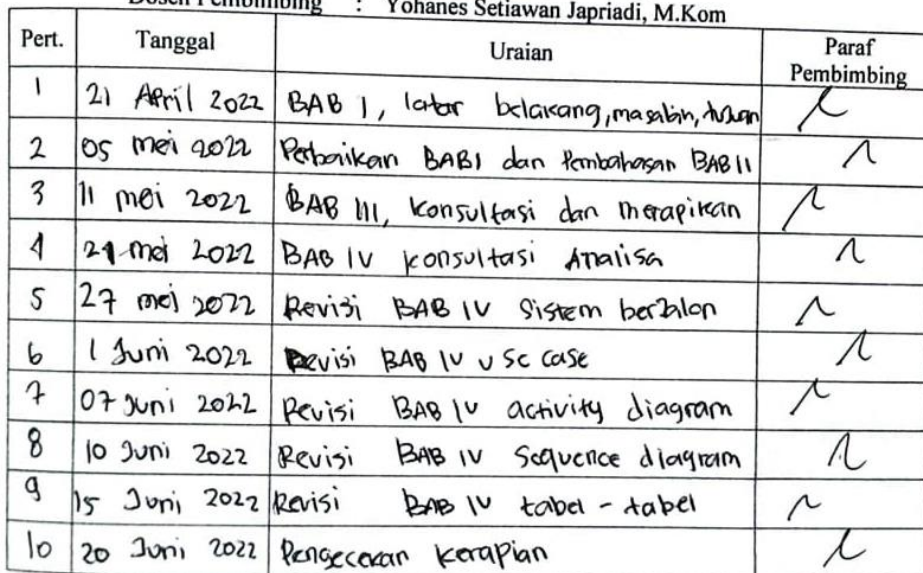 Dosen Pembimbing : Yohanes Setiawan Japriadi, M.Kom
Pert. Tanggal Uraian Paraf Pembimbing
1 21 April 2022 BAB I, latar belakang, masalah, tujuan
2 05 mei 2022 Perbaikan BAB I dan Pembahasan BAB II
3 11 mei 2022 BAB III, Konsultasi dan merapikan
4 mei 2022 BAB IV Konsultasi Analisa
5 27 mei 2022 Revisi BAB IV Sistem berjalan
6 1 Juni 2022 Revisi BAB IV use case
7 07 Juni 2022 Revisi BAB IV activity diagram
8 10 Juni 2022 Revisi BAB IV Sequence diagram
9 15 Juni 2022 Revisi BAB IV tabel - tabel
10 20 Juni 2022 Pengecekan Kerapian